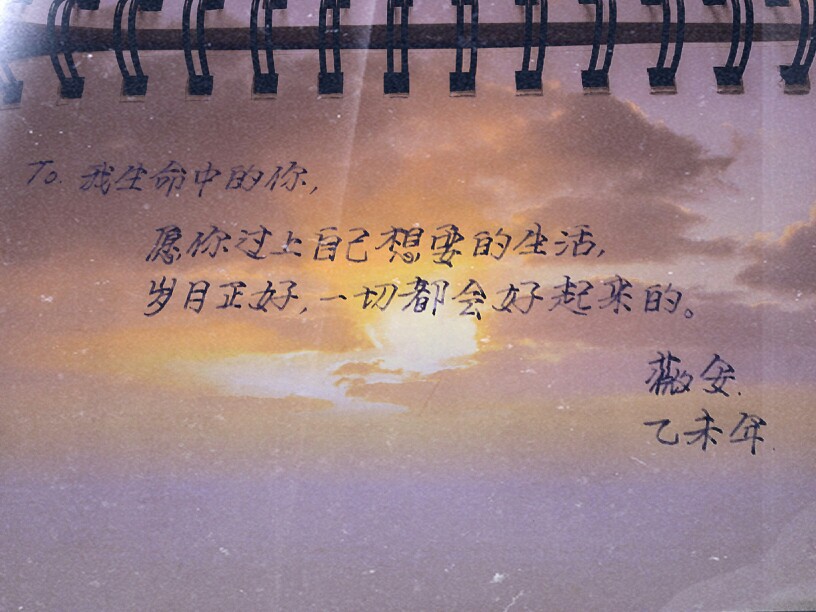 To. 我生命中的你,
愿你过上自己想要的生活,
岁月正好,一切都会好起来的。
薇安.
乙未年.